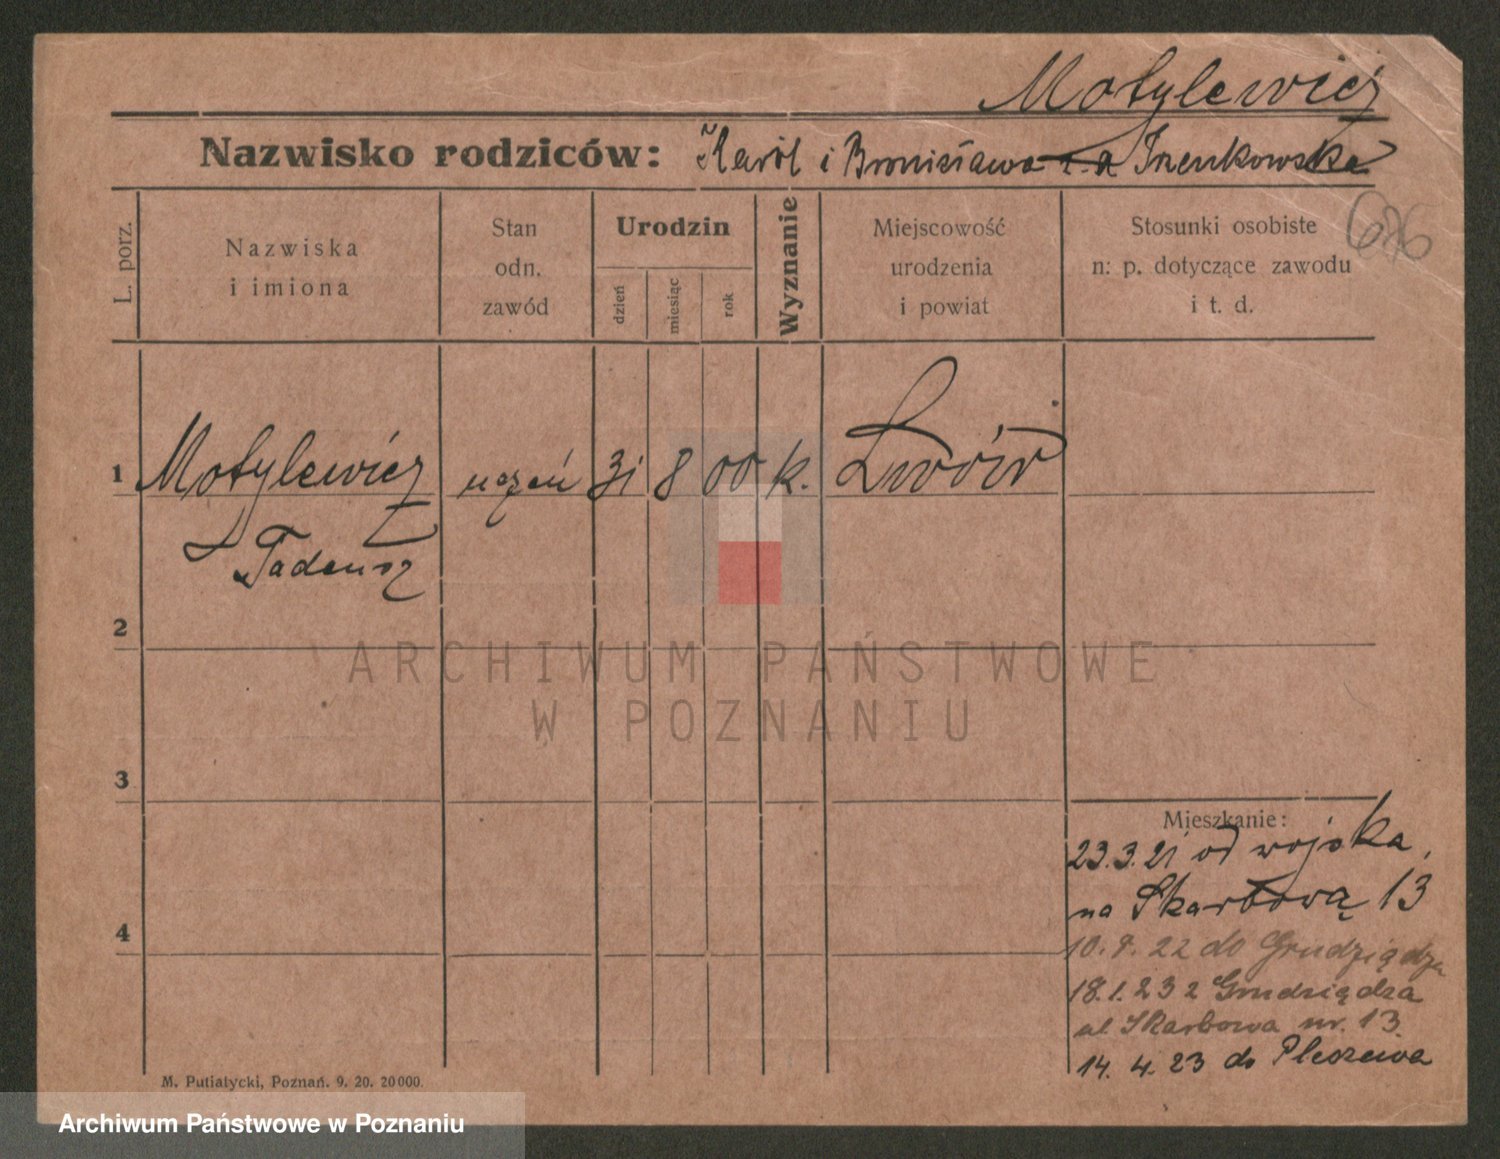 Motylewicz
Nazwisko rodziców: Karól i Bronisława
676
L. porz.
Nazwiska
i imiona
Stan
odn.
zawód
Urodzin
dzień
miesiąc
rok
Wyznanie
Miejscowość
urodzenia
i powiat
Stosunki osobiste
n: p. dotyczące zawodu
i t. d.
1 Motylewicz uczeń 31 8 00 k. Lwów
Tadeusz
2
3
4
Mieszkanie:
23.3.21 od wojska,
na Skarbową 13
10.9.22 do Grudziądza
18.1.23 z Grudziądza
ul. Skarbowa nr. 13.
14.4.23 do Pleszewa
M. Putiatycki, Poznań. 9. 20. 20000.
ARCHIWUM PAŃSTWOWE
W POZNANIU
Archiwum Państwowe w Poznaniu